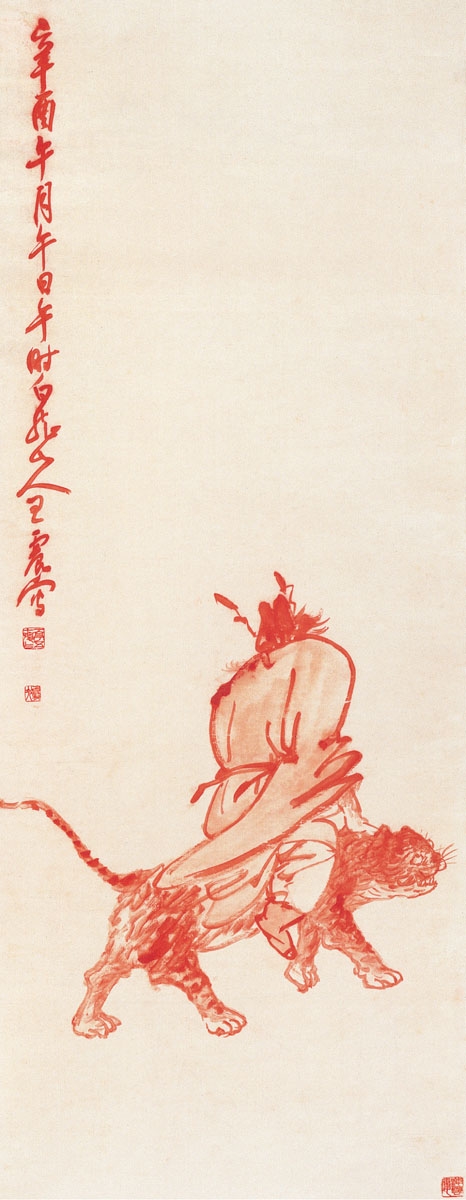 辛酉午月午日午时白龙山人王震写